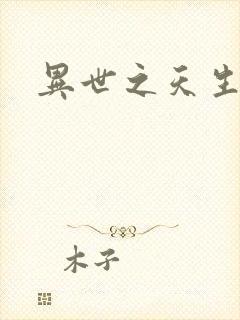 異世之天生
木子